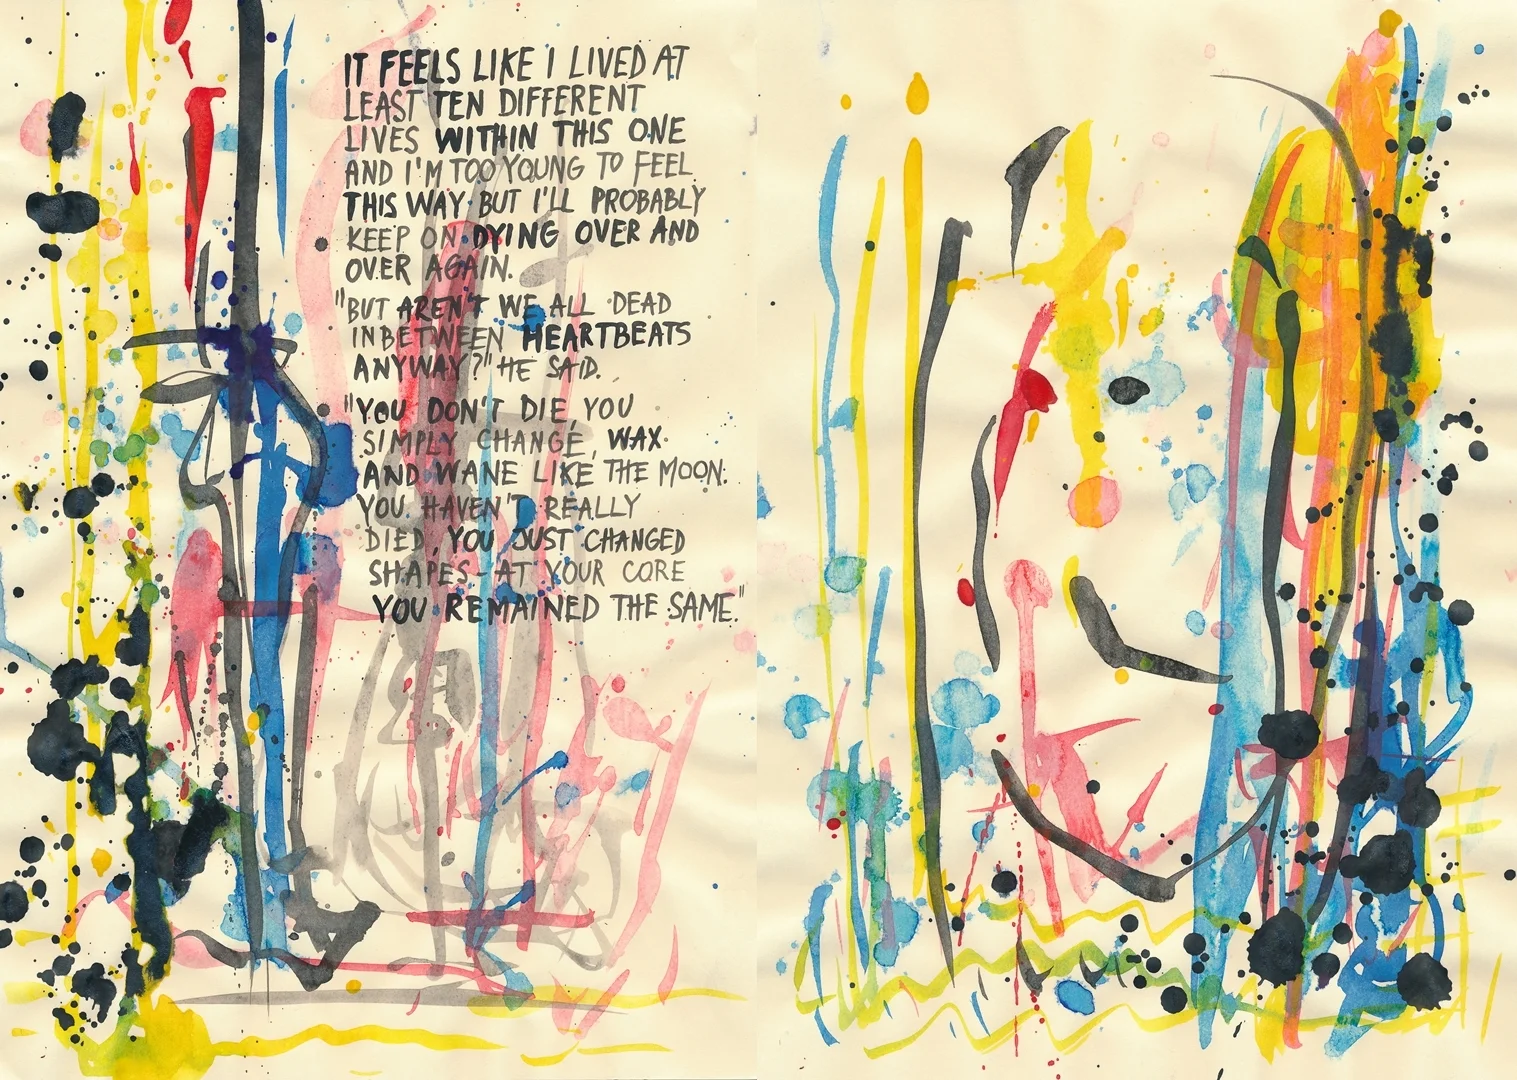 IT FEELS LIKE I LIVED AT
LEAST TEN DIFFERENT
LIVES WITHIN THIS ONE
AND I'M TOO YOUNG TO FEEL
THIS WAY BUT I'LL PROBABLY
KEEP ON DYING OVER AND
OVER AGAIN.
"BUT AREN'T WE ALL DEAD
INBETWEEN HEARTBEATS
ANYWAY?" HE SAID.
"YOU DON'T DIE, YOU
SIMPLY CHANGE, WAX
AND WANE LIKE THE MOON.
YOU HAVEN'T REALLY
DIED, YOU JUST CHANGED
SHAPES - AT YOUR CORE
YOU REMAINED THE SAME."